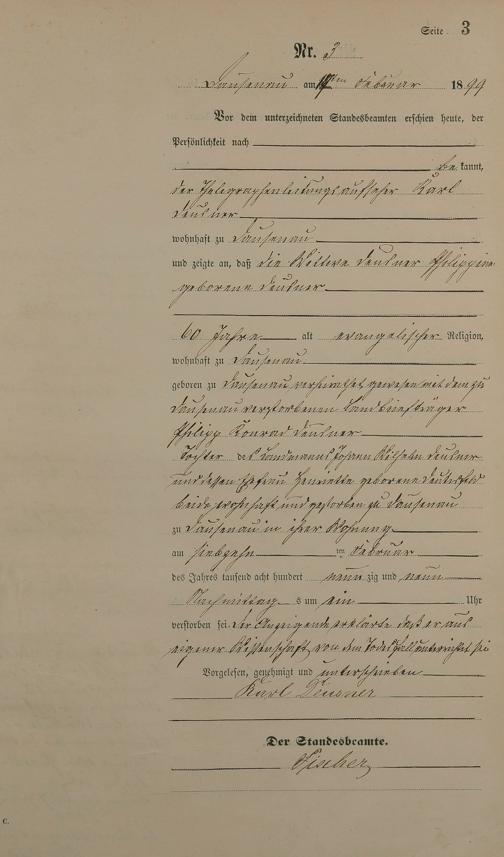 Seite 3
Nr. 3
Dausenau am 17ten Februar 1899
Vor dem unterzeichneten Standesbeamten erschien heute, der
Persönlichkeit nach
be kannt,
der Telegraphenleitungsaufseher Karl
Deusner
wohnhaft zu Dausenau
und zeigte an, daß die Wittwe Deusner Philippine
geborene Deusner
60 Jahre alt evangelischer Religion,
wohnhaft zu Dausenau
geboren zu Dausenau verheirathet gewesen mit dem zu
Dausenau verstorbenen Landbriefträger
Philipp Konrad Deusner
Tochter des Landmanns Johann Wilhelm Deusner
und dessen Ehefrau Henriette geborene
beide wohnhaft und gestorben zu Dausenau
zu Dausenau in ihrer Wohnung
am siebzehn ten Februar
des Jahres tausend acht hundert neun zig und neun
Nachmittag s um ein Uhr
verstorben sei. Der Anzeigende erklärte daß er aus
eigener Wissenschaft von dem Todesfall unterrichtet sei
Vorgelesen, genehmigt und unterschrieben
Karl Deusner
Der Standesbeamte.
Fischer
C.